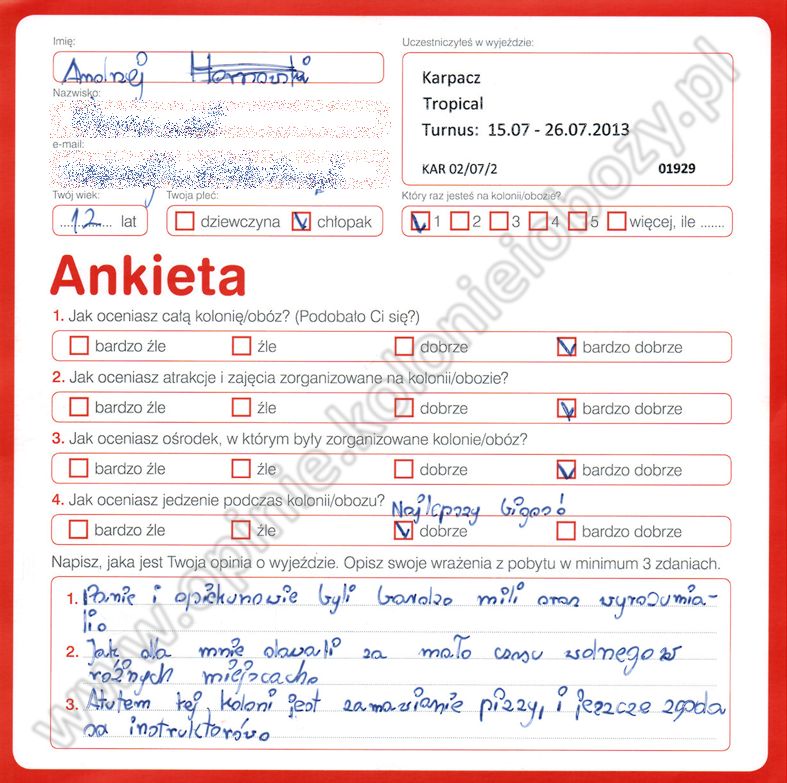 Imię:
Andrzej
Uczestniczyłeś w wyjeździe:
Karpacz
Tropical
Turnus: 15.07 - 26.07.2013
KAR 02/07/2 01929
Nazwisko:
e-mail:
Twój wiek:
12 lat
Twoja płeć:
dziewczyna chłopak
Który raz jesteś na kolonii/obozie?
1 2 3 4 5 więcej, ile .......
Ankieta
1. Jak oceniasz całą kolonię/obóz? (Podobało Ci się?)
bardzo źle źle dobrze bardzo dobrze
2. Jak oceniasz atrakcje i zajęcia zorganizowane na kolonii/obozie?
bardzo źle źle dobrze bardzo dobrze
3. Jak oceniasz ośrodek, w którym były zorganizowane kolonie/obóz?
bardzo źle źle dobrze bardzo dobrze
4. Jak oceniasz jedzenie podczas kolonii/obozu? Najlepszy bigos!
bardzo źle źle dobrze bardzo dobrze
Napisz, jaka jest Twoja opinia o wyjeździe. Opisz swoje wrażenia z pobytu w minimum 3 zdaniach.
1. Panie i opiekunowie byli bardzo mili oraz wyrozumia-
li.
2. Jak dla mnie dawali za mało czasu wolnego w
różnych miejscach.
3. Atutem tej koloni jest zamawianie pizzy, i jeszcze zgoda
instruktorów.
www.opinie.kolonieiobozy.pl